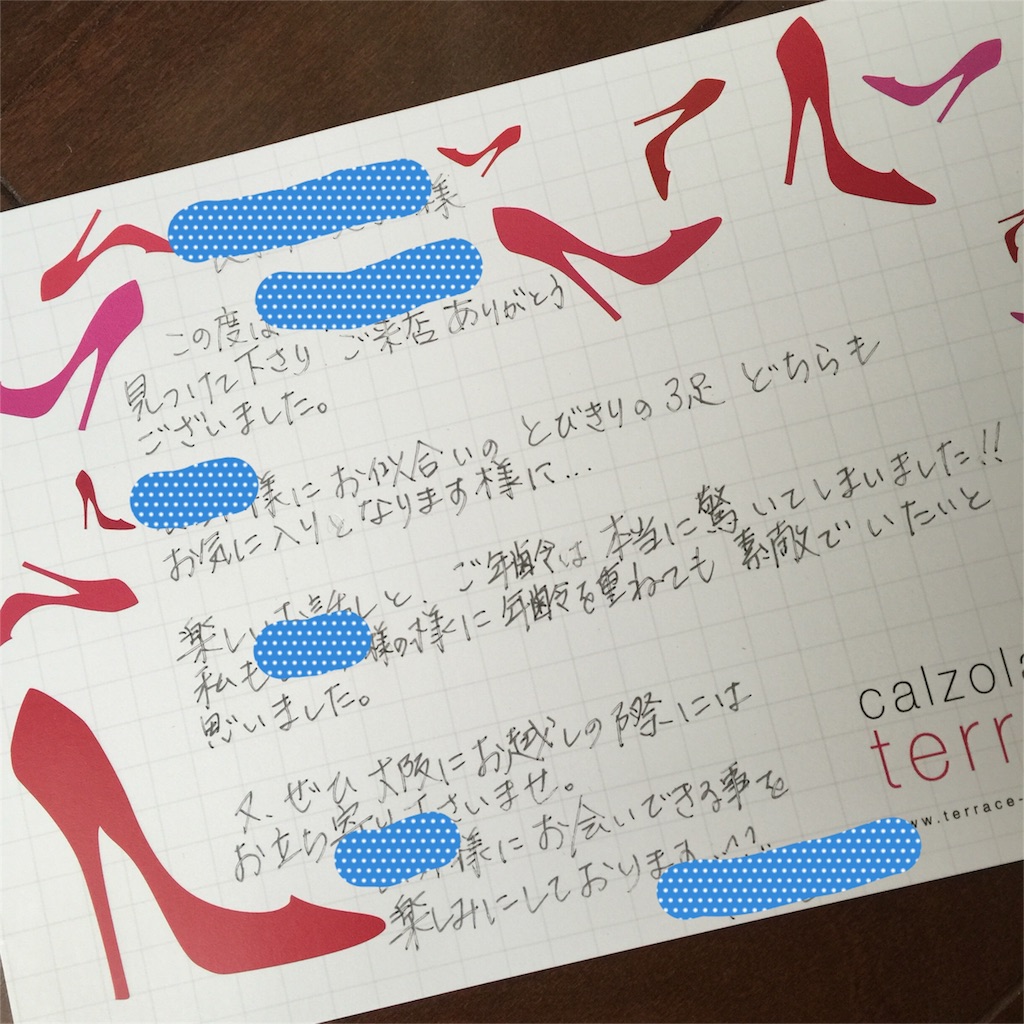 様
この度は
見つけて下さり ご来店 ありがとう
ございました。
様に お似合いの とびきりの 3足 どちらも
お気に入りとなります様に...
楽しいお話しと、ご年齢は 本当に驚いてしまいました!!
私も 様の様に 年齢を重ねても 素敵で いたいと
思いました。
又、ぜひ 大阪にお越しの際には
お立ち寄り下さいませ。
様に お会いできる事を
楽しみにしております
calzola
terr
www.terrace-